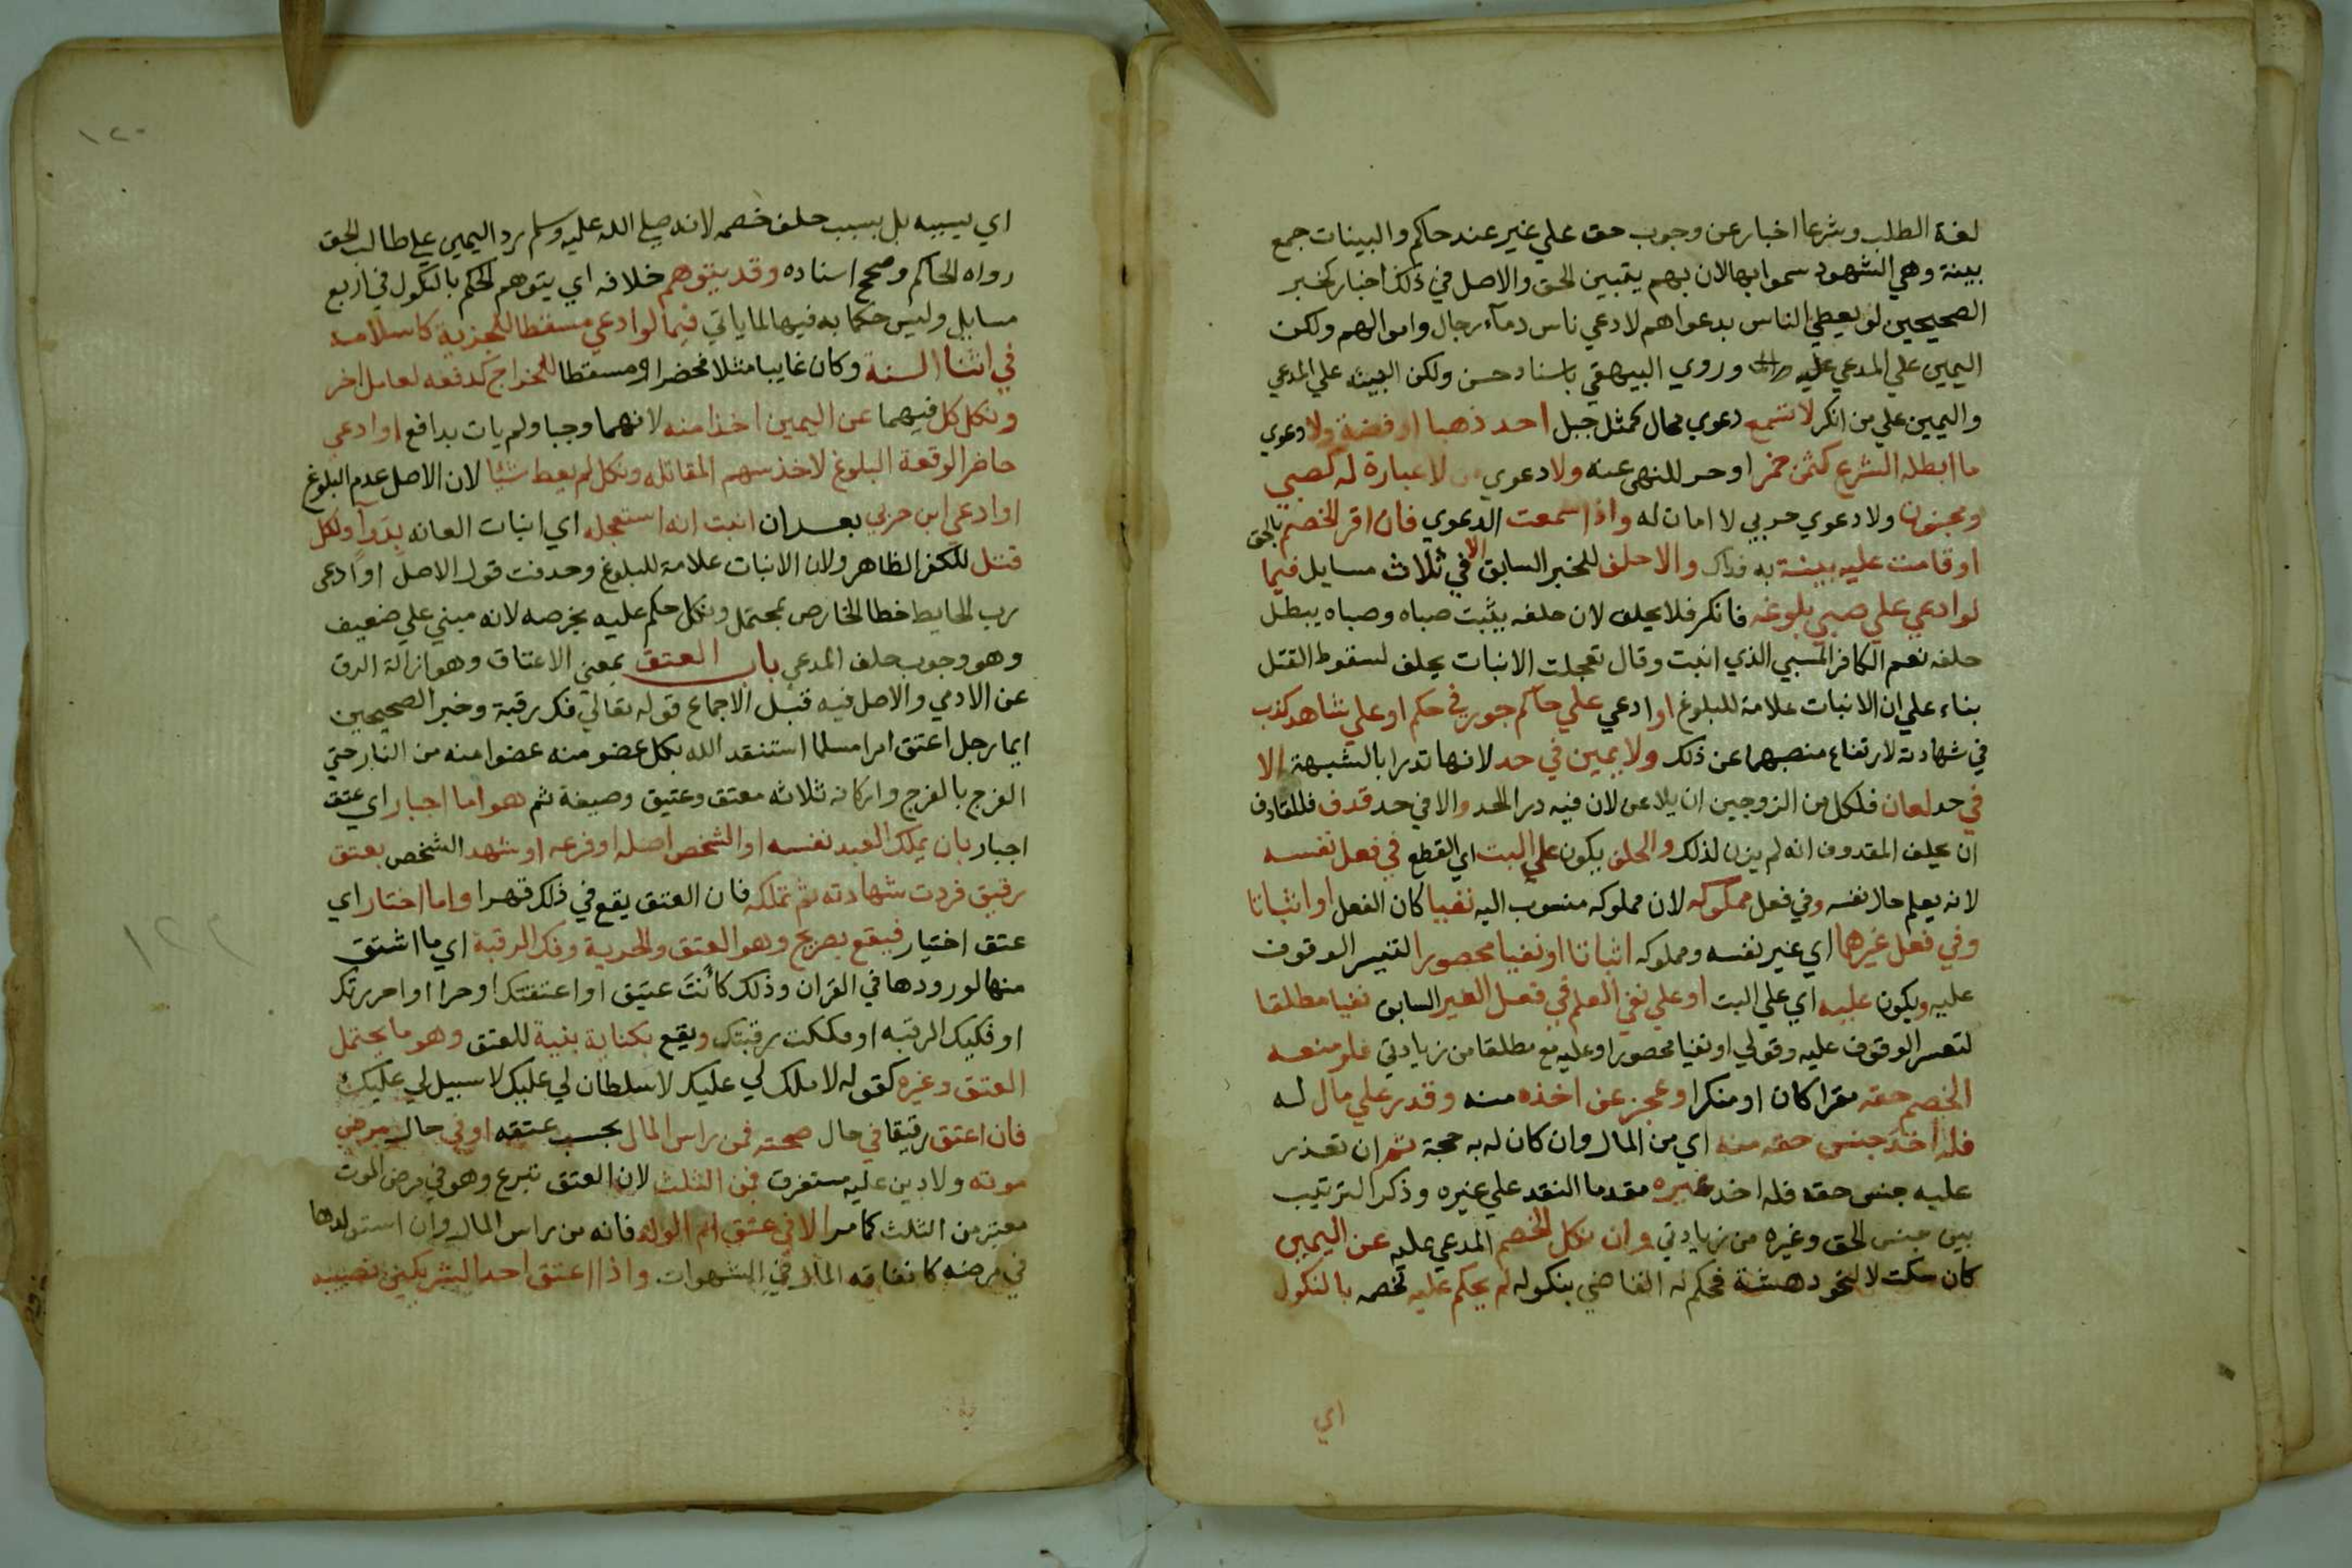 لغة الطلب وشرعا اخبار عن وجوب حق علي غير عند حاكم والبينات جمع
بينة وهي الشهود سموا بها لان بهم يتبين الحق والاصل في ذلك اخبار كخبر
الصحيحين لو يعطي الناس بدعواهم لادعي ناس دمآء رجال واموالهم ولكن
اليمين علي المدعي عليه وروي البيهقي باسناد حسن ولكن البينه علي المدعي
واليمين علي من انكر لا تسمع دعوي محال كمثل جبل احد ذهبا او فضة ولا دعوي
ما ابطله الشرع كثمن خمر او حر للنهي عنه ولا دعوي من لا عبارة له كصبي
ومجنون ولا دعوي حربي لا امان له واذا سمعت الدعوي فان اقر الخصم بالحق
او قامت عليه بينة به فذاك والا حلف للخبر السابق الا في ثلاث مسايل فيما
لو ادعي علي صبي بلوغه فانكر فلا يحلف لان حلفه يثبت صباه وصباه يبطل
حلفه نعم الكافر المسبي الذي انبت وقال تعجلت الانبات يحلف لسقوط القتل
بناء علي ان الانبات علامة للبلوغ او ادعي علي حاكم جور في حكم او علي شاهد كذب
في شهادته لارتفاع منصبهما عن ذلك ولا يمين في حد لانها تدرا بالشبهة الا
في حد لعان فلكل من الزوجين ان يلاعن لان فيه درا الحد والا في حد قذف فللقاذف
ان يحلف المقذوف انه لم يزن لذلك والحلف يكون علي البت اي القطع في فعل نفسه
لانه يعلم حال نفسه وفي فعل مملوكه لان مملوكه منسوب اليه نفيا كان الفعل او اثباتا
وفي فعل غيرهما اي غير نفسه ومملوكه اثباتا او نفيا محصورا لتيسر الوقوف
عليه ويكون عليه اي علي البت او علي نفي العلم في فعل الغير السابق نفيا مطلقا
لتعسر الوقوف عليه وقولي او نفيا محصورا وعليه مع مطلقا من زيادتي فلو منعه
الخصم حقه مقرا كان او منكرا وعجز عن اخذه منه وقدر علي مال له
فله اخذ جنس حقه منه اي من المال وان كان له به حجة ثم ان تعذر
عليه جنس حقه فله اخذ غيره مقدما النقد علي غيره وذكر الترتيب
بين جنس الحق وغيره من زيادتي وان نكل الخصم المدعي عليه عن اليمين
كان سكت لا لنحو دهشة فحكم له القاضي بنكوله لم يحكم عليه لخصمه بالنكول
اي
١٢٠
اي بسببه بل بسبب حلف خصمه لانه صلي الله عليه وسلم رد اليمين علي طالب الحق
رواه الحاكم وصحح اسناده وقد يتوهم خلافه اي يتوهم الحكم بالنكول في اربع
مسايل وليس حكما به فيها لما ياتي فيما لو ادعي مسقطا للجزية كاسلامه
في اثنا السنة وكان غايبا مثلا فحضر او مسقطا للخراج كدفعه لعامل اخر
ونكل كل فيهما عن اليمين اخذا منه لانهما وجبا ولم يات بدافع او ادعي
حاضر الوقعة البلوغ لاخذ سهم المقاتله ونكل لم يعط شيا لان الاصل عدم البلوغ
او ادعي ابن حربي بعد ان انبت انه استعجله اي انبات العانه بدوآ ونكل
قتل للكفر الظاهر ولان الانبات علامة للبلوغ وحذفت قول الاصل او ادعي
رب الحايط خطا الخارص بمحتمل ونكل حكم عليه بخرصه لانه مبني علي ضعيف
وهو وجوب حلف المدعي باب العتق بمعني الاعتاق وهو ازالة الرق
عن الادمي والاصل فيه قبل الاجماع قوله تعالي فك رقبة وخبر الصحيحين
ايما رجل اعتق امرا مسلما استنقذ الله بكل عضو منه عضوا منه من النار حتي
الفرج بالفرج واركانه ثلاثه معتق وعتيق وصيغة ثم هو اما اجبار اي عتق
اجبار بان يملك العبد نفسه او الشخص اصله او فرعه او شهد الشخص بعتق
رقيق فردت شهادته ثم تملكه فان العتق يقع في ذلك قهرا واما اختيار اي
عتق اختيار فيقع بصريح وهو العتق والحرية وفك الرقبة اي ما اشتق
منها لورودها في القران وذلك كأنتَ عتيق او اعتقتك او حر او احررتك
او فكيك الرقبه او فككت رقبتك ويقع بكناية بنية للعتق وهو ما يحتمل
العتق وغيره كقوله لا ملك لي عليك لا سلطان لي عليك لا سبيل لي عليك
فان اعتق رقيقا في حال صحته فمن راس المال يحسب عتقه او في حال مرض
موته ولا دين عليه مستغرق فمن الثلث لان العتق تبرع وهو في مرض الموت
معتبر من الثلث كما مر الا في عتق ام الولد فانه من راس المال وان استولدها
في مرضه كانفاقه المال في الشهوات واذا اعتق احد الشريكين نصيبه
١٢٢